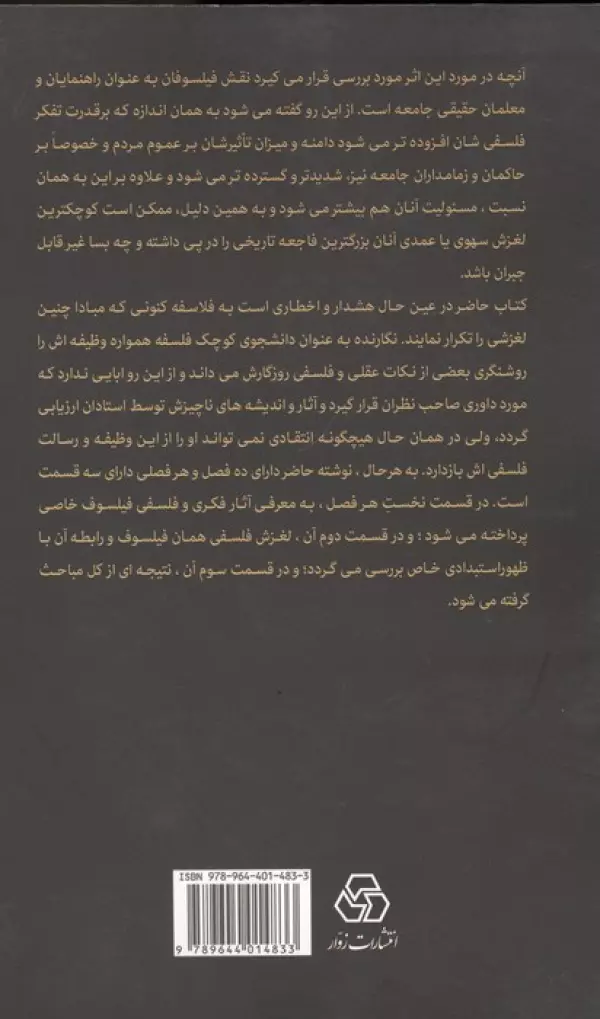 آنچه در مورد این اثر مورد بررسی قرار می گیرد نقش فیلسوفان به عنوان راهنمایان و
معلمان حقیقی جامعه است. از این رو گفته می شود به همان اندازه که برقدرت تفکر
فلسفی شان افزوده تر می شود دامنه و میزان تأثیرشان بر عموم مردم و خصوصاً بر
حاکمان و زمامداران جامعه نیز، شدیدتر و گسترده تر می شود و علاوه بر این به همان
نسبت ، مسئولیت آنان هم بیشتر می شود و به همین دلیل، ممکن است کوچکترین
لغزش سهوی یا عمدی آنان بزرگترین فاجعه تاریخی را در پی داشته و چه بسا غیر قابل
جبران باشد.
کتاب حاضر در عین حال هشدار و اخطاری است به فلاسفه کنونی که مبادا چنین
لغزشی را تکرار نمایند. نگارنده به عنوان دانشجوی کوچک فلسفه همواره وظیفه اش را
روشنگری بعضی از نکات عقلی و فلسفی روزگارش می داند و از این رو ابایی ندارد که
مورد داوری صاحب نظران قرار گیرد و آثار و اندیشه های ناچیزش توسط استادان ارزیابی
گردد، ولی در همان حال هیچگونه انتقادی نمی تواند او را از این وظیفه و رسالت
فلسفی اش بازدارد. به هرحال ، نوشته حاضر دارای ده فصل و هر فصلی دارای سه قسمت
است. در قسمت نخست هر فصل ، به معرفی آثار فکری و فلسفی فیلسوف خاصی
پرداخته می شود ؛ و در قسمت دوم آن ، لغزش فلسفی همان فیلسوف و رابطه آن با
ظهوراستبدادی خاص بررسی می گردد؛ و در قسمت سوم آن ، نتیجه ای از کل مباحث
گرفته می شود.
ISBN 978-964-401-483-3
9 789644 014833
انتشارات زوّار